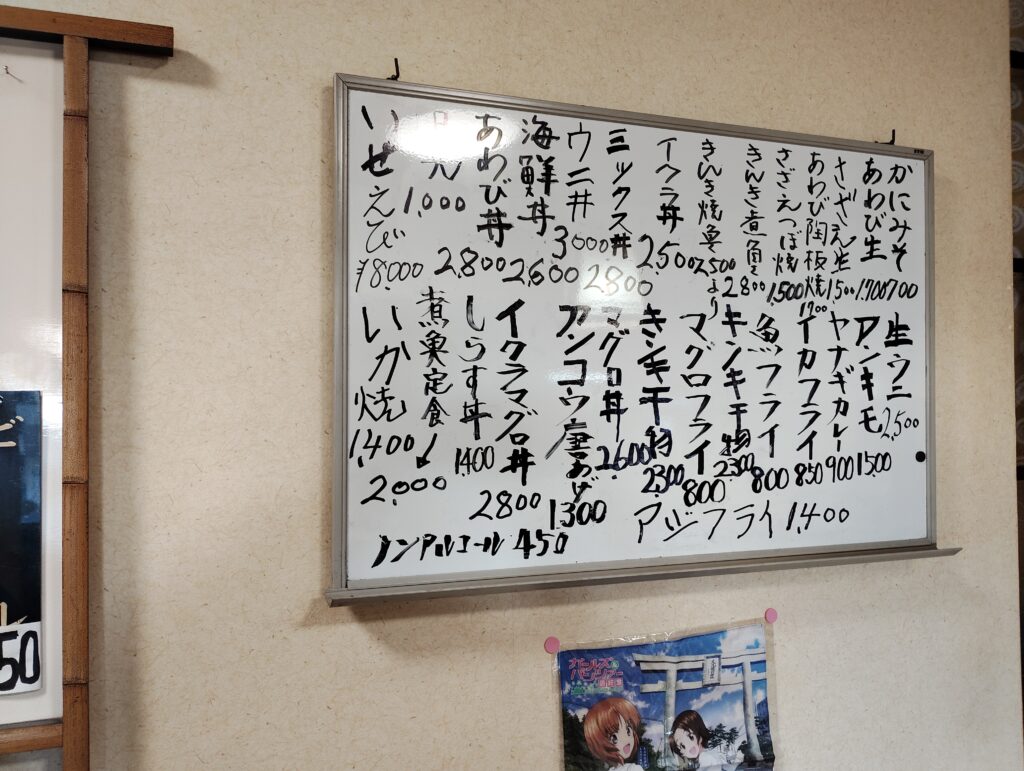 かにみそ 700
あわび生 1,700
さざえ生 1,500
あわび陶板焼 1,700
さざえつぼ焼 1,500
きんき煮魚 2,800
きんき焼魚 2,500より
イクラ丼 2,500
ミックス丼 2,800
ウニ丼 3,000
海鮮丼 2,600
あわび丼 2,800
1,000
いせえび ¥18,000
生ウニ 2,500
アンキモ 1,500
ヤナギカレー 900
イカフライ 850
魚フライ 800
キンキ干物 2,300
マグロフライ 800
キンキ干物 2,300
マグロ丼 2,600
アンコウ唐あげ 1300
イクラマグロ丼 2800
しらす丼 1400
煮魚定食 ↓ 2,000
いか焼 1,400
アジフライ 1,400
ノンアルコール 450
50
ガールズ&パンツァー
劇場版